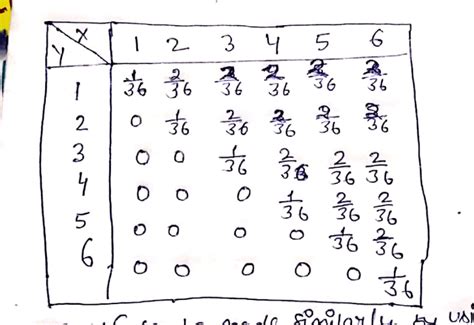 Y X 1 2 3 4 5 6
1 1/36 2/36 2/36 2/36 2/36 2/36
2 0 1/36 2/36 2/36 2/36 2/36
3 0 0 1/36 2/36 2/36 2/36
4 0 0 0 1/36 2/36 2/36
5 0 0 0 0 1/36 2/36
6 0 0 0 0 0 1/36
similarly by usi